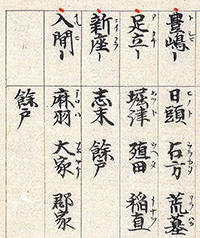 豊嶋〡 日頭 占方 荒墓
足立〡 堀津 殖田 稲直
新座〡 志末 餘戸
入間〡 麻羽 大家 郡家
餘戸